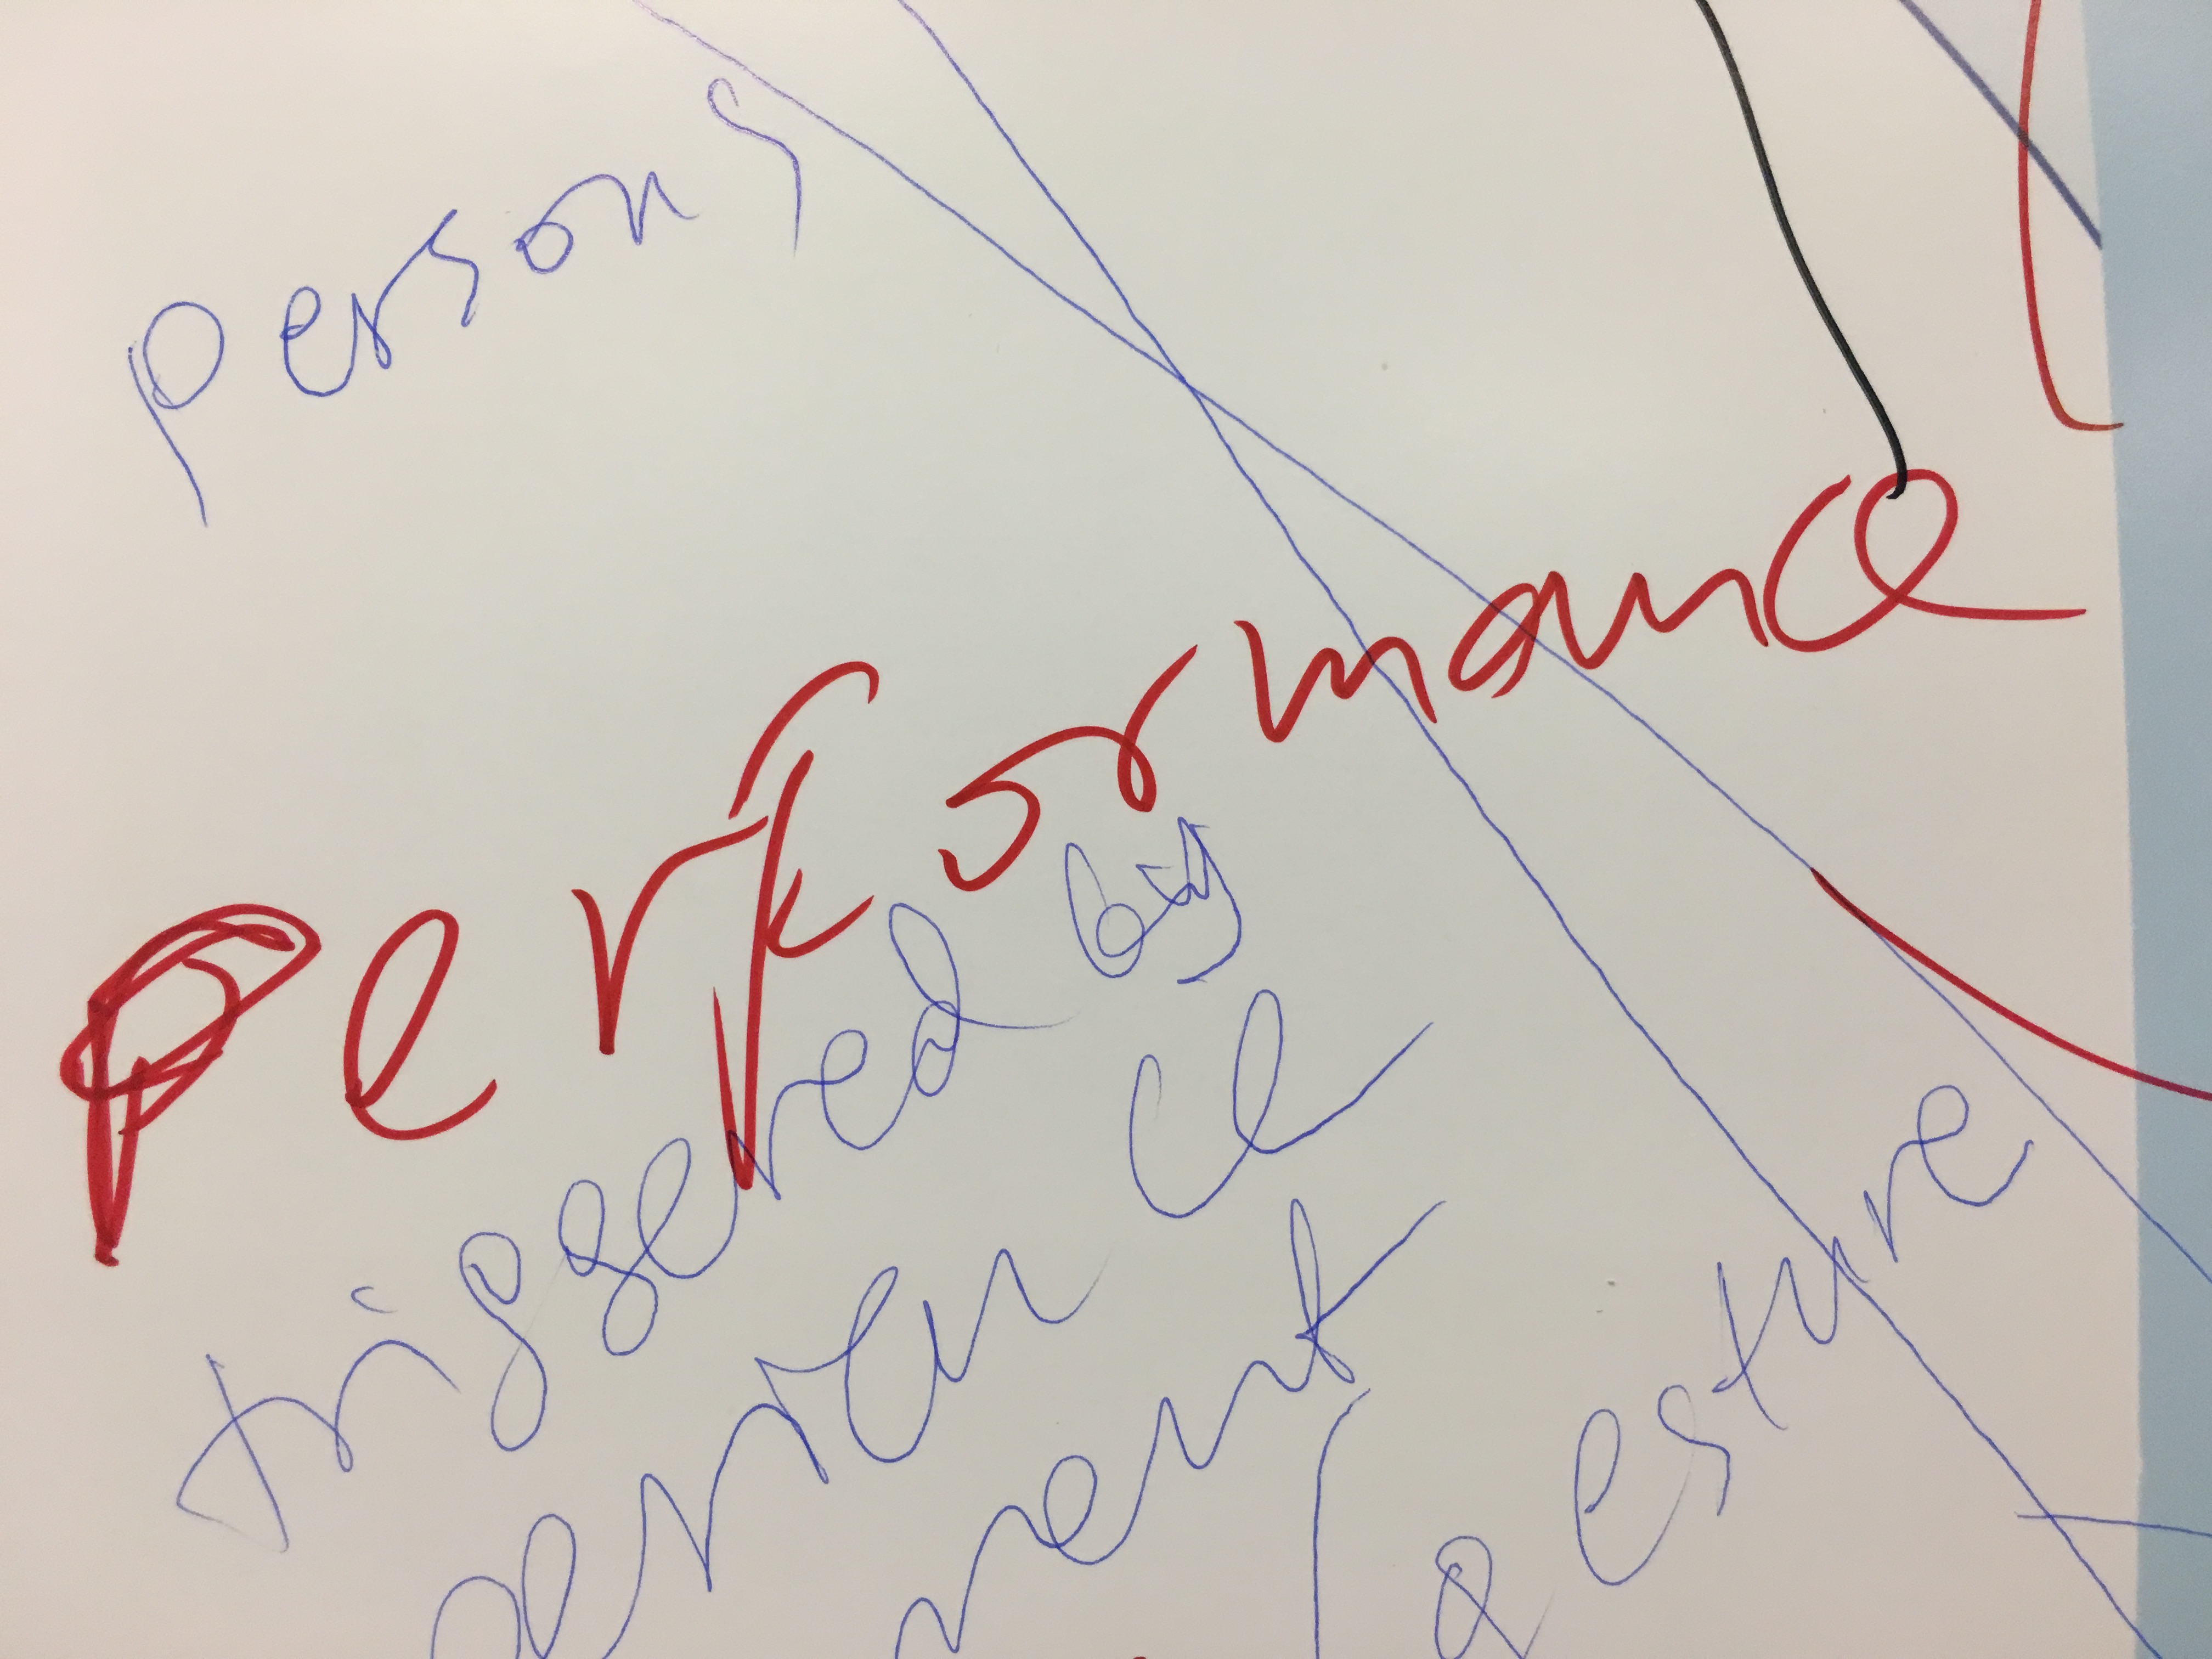 persons
performance
triggered by
ment
gesture